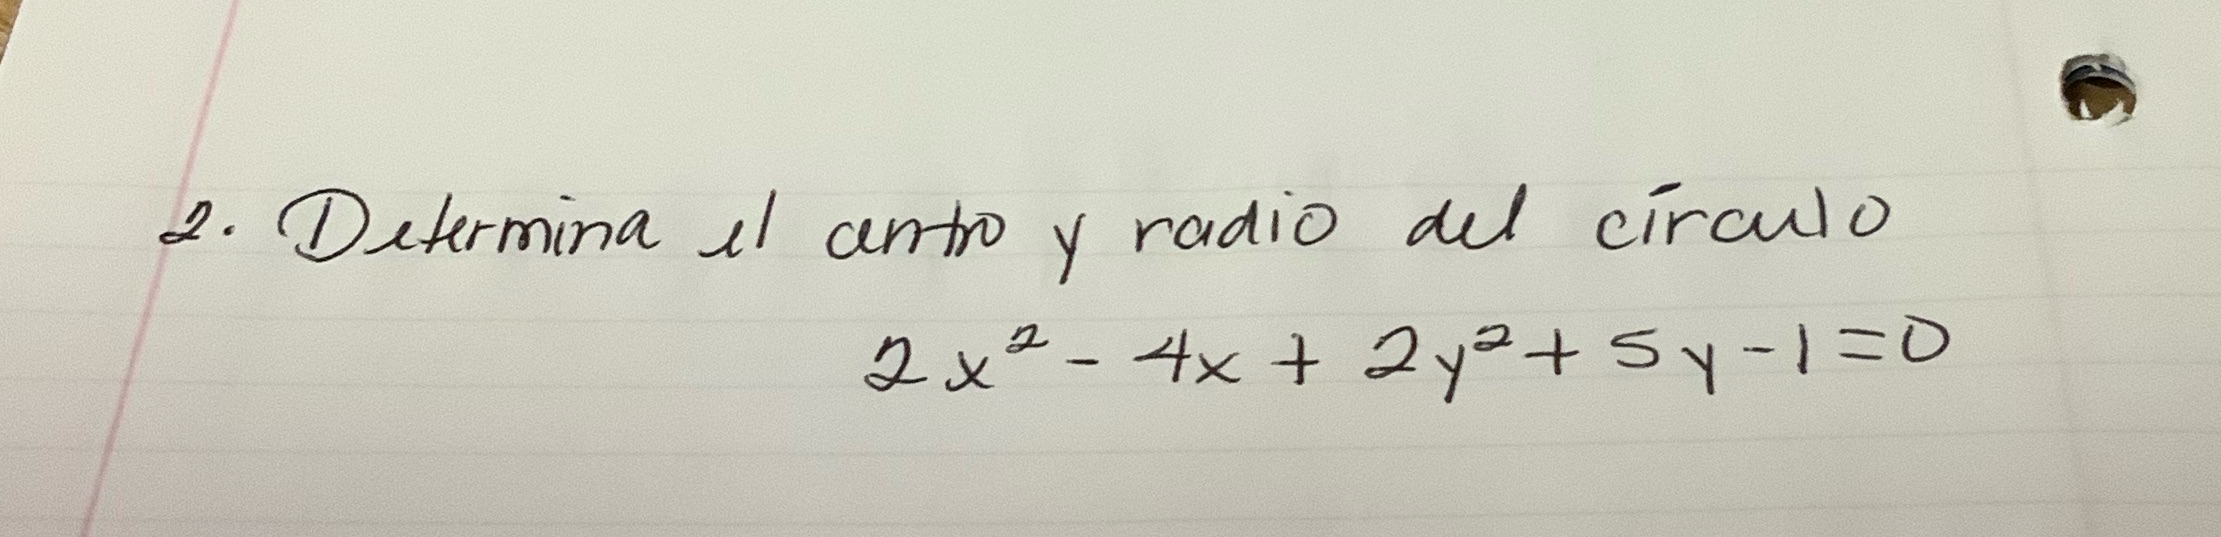 2. Determina el centro y radio del círculo
2x² - 4x + 2y² + 5y - 1 = 0